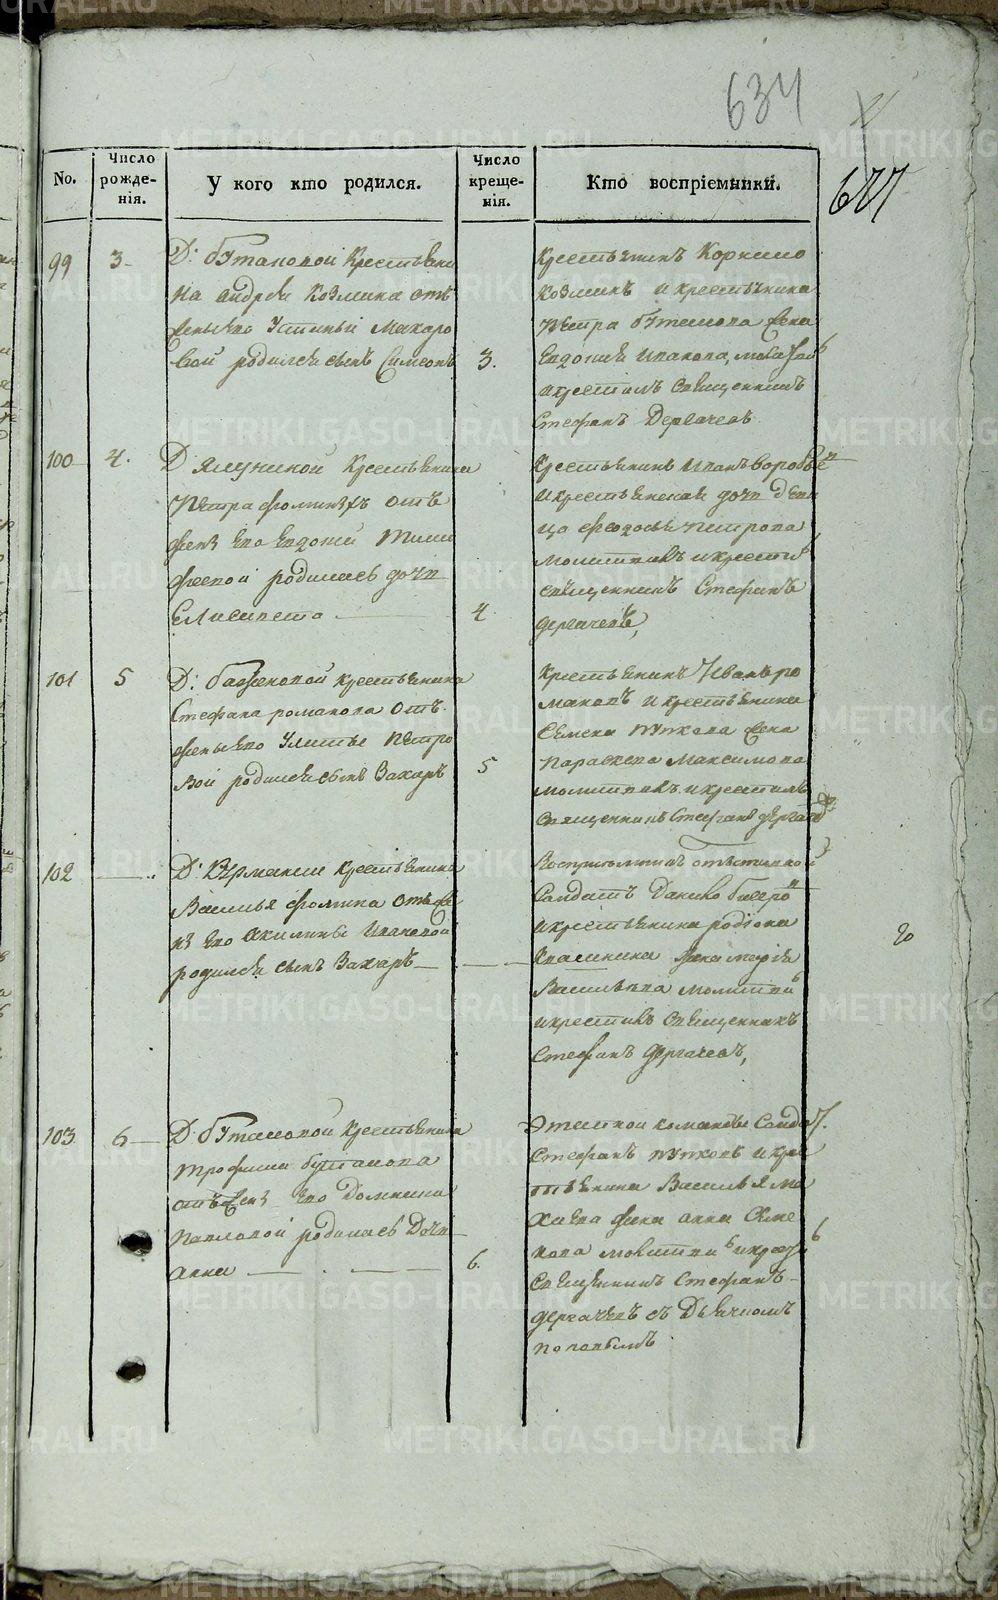 634
677
No.
Число рожде-
нія.
У кого кто родился.
Число креще-
нія.
Кто воспріемники.
99
3
Д: бутаковой крестьяни
на андрея козмина отъ
жены его Устиньи Макаро
вой родился сынъ Симеонъ
3.
крестьянинъ Корнило
козминъ и крестьянина
петра бутакова жена
Евдокия иванова, молитвилъ
и крестилъ священникъ
Стефанъ Дергачевъ
100
4.
Д ялуниной крестьянина
петра фоминыхъ отъ
жены его Евдокии Тимо
феевой родилась дочь
Елисавета
4
крестьянинъ иванъ воробьев
и крестьянская дочь деви
ца феодосья петрова
молитвилъ и крестилъ
священникъ Стефанъ
дергачевъ,
101
5
Д: баженовой крестьянина
Стефана романова отъ
жены его Улитьи петро
вой родился сынъ Захаръ
5
крестьянинъ Иванъ ро
мановъ и крестьянина
Семена пупкова жена
параскева Максимова
молитвилъ и крестилъ
священникъ Стефанъ дергачев
102
Д: крестьянина
Василья фомина отъ же
ны его Акилины Ивановой
родился сынъ Захаръ
воспріемники отставной
Солдатъ Данило
и крестьянина родіона
жена марія
Васильева молитвилъ
и крестилъ священникъ
Стефанъ дергачевъ,
103
6
Д: бутаковой крестьянина
трофима бутакова
отъ жены его Домники
павловой родилась дочь
анна
6.
Этапной команды Солдат.
Стефанъ пупковъ и кре
стьянина Василья ма
жена анна Семе
нова молитвилъ и крестилъ
Священникъ Стефанъ
дергачевъ съ Дьячкомъ
поповымъ
METRIKI.GASO-URAL.RU